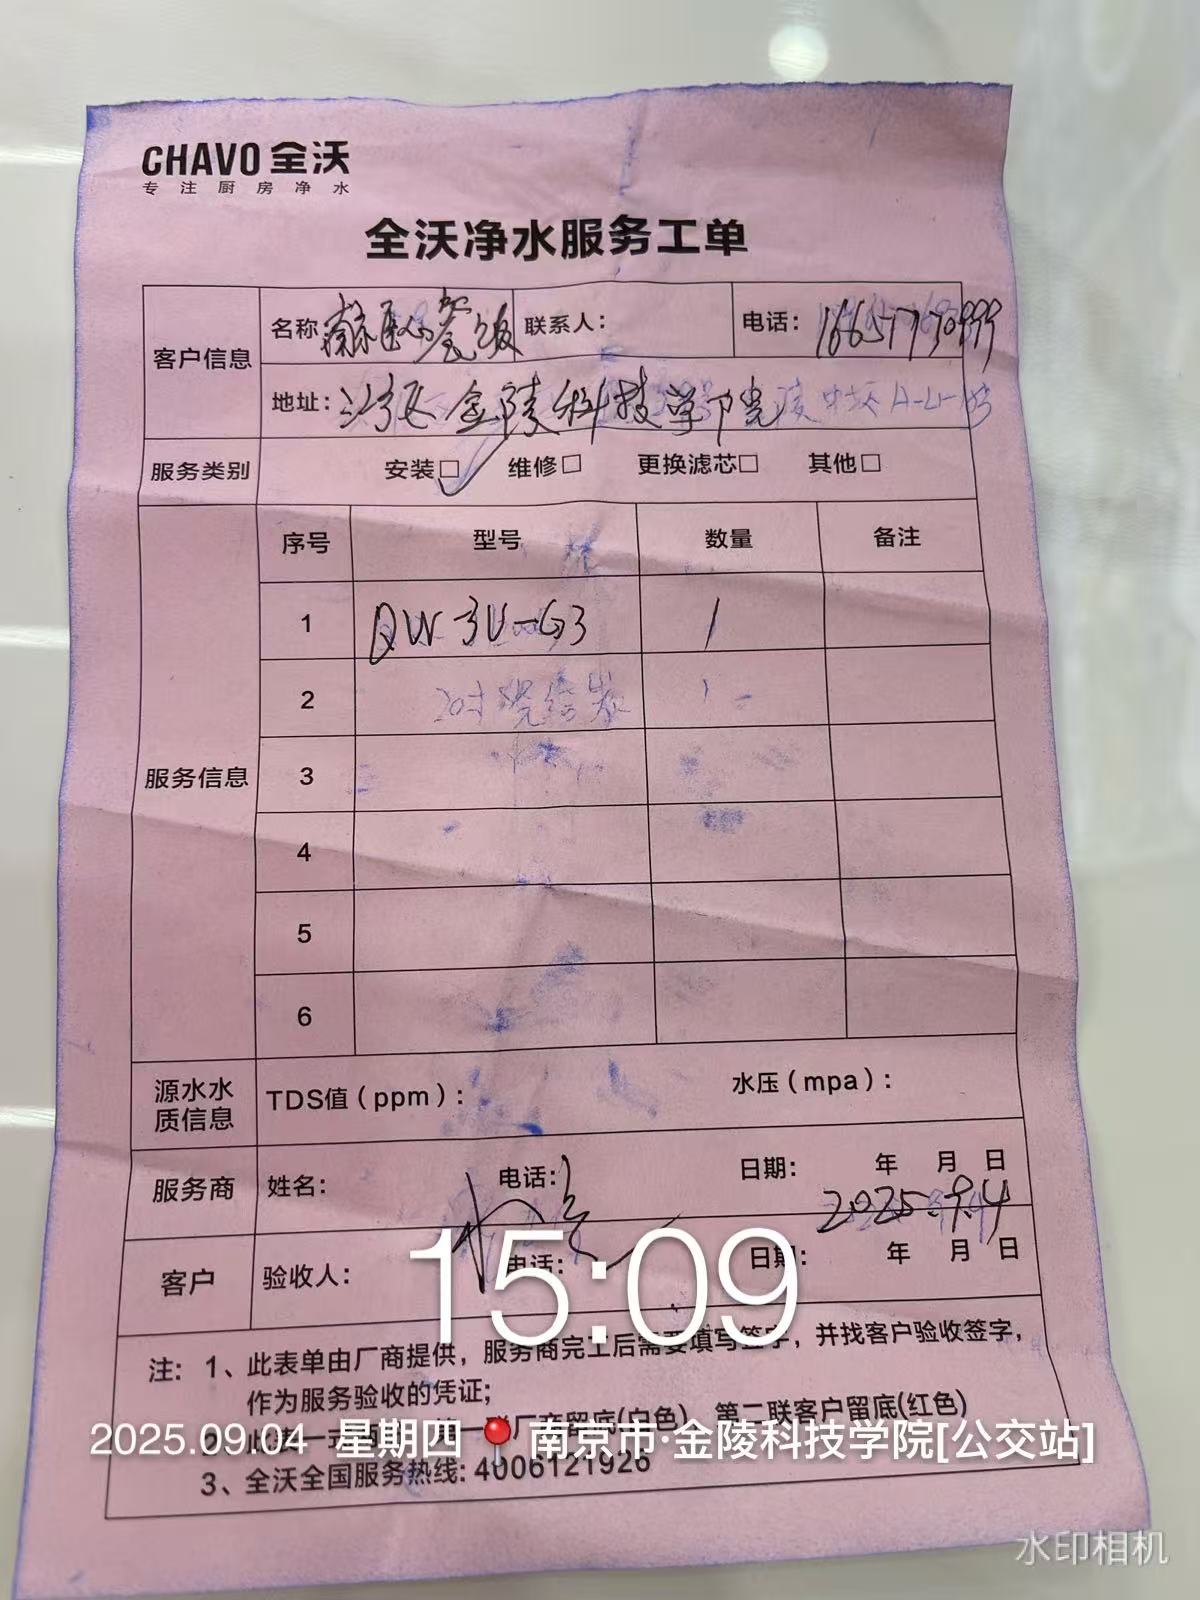 CHAVO 全沃
专注厨房净水
全沃净水服务工单
客户信息 名称: 联系人: 电话: 16657170999
地址: 金陵科技学院
服务类别 安装□ 维修□ 更换滤芯□ 其他□
服务信息 序号 型号 数量 备注
1 QW-3U-G3 1
2
3
4
5
6
源水水质信息 TDS值(ppm): 水压(mpa):
服务商 姓名: 电话: 日期: 年 月 日
2025.9.4
客户 验收人: 电话: 日期: 年 月 日
15:09
注: 1、此表单由厂商提供,服务商完工后需要填写签字,并找客户验收签字,
作为服务验收的凭证;
厂商留底(白色) 第二联客户留底(红色)
2025.09.04 星期四 南京市·金陵科技学院[公交站]
3、全沃全国服务热线:4006121926
水印相机